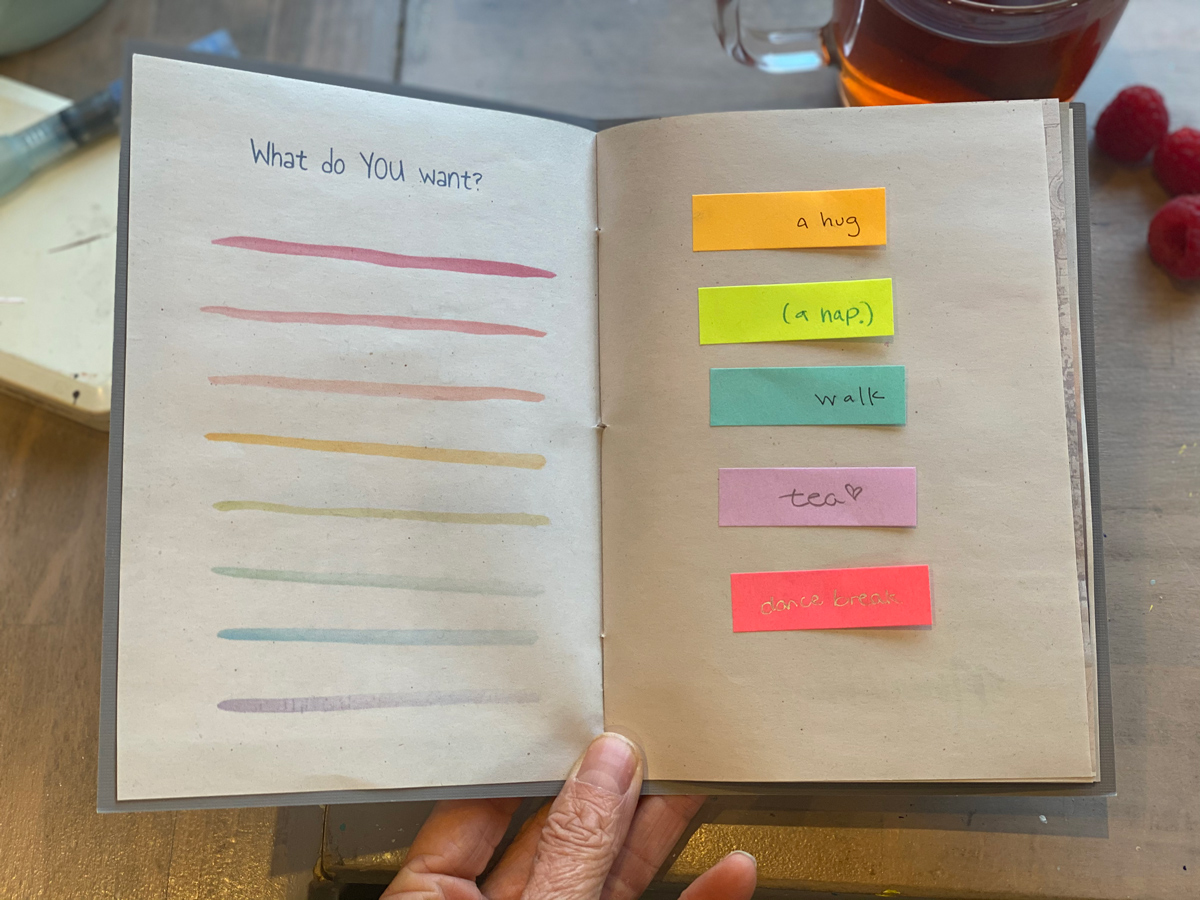 What do YOU want?
a hug
(a nap.)
walk
tea♡
dance break